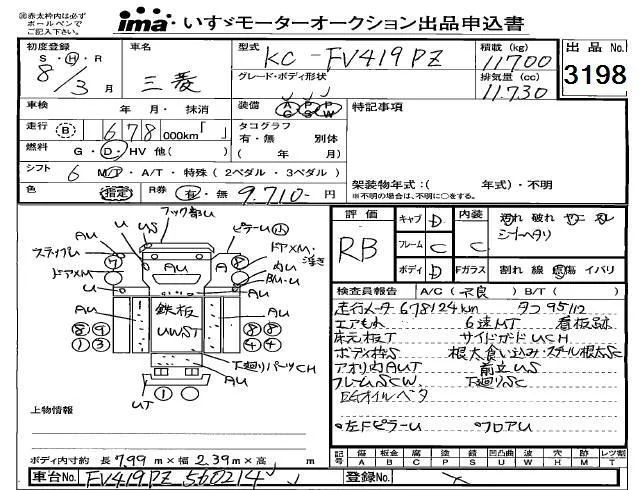 ㊟赤太枠内は必ず
ボールペンで
ご記入下さい。
ima いすゞモーターオークション出品申込書
初度登録
S・H・R
8/3月
車名
三菱
型式
KC-FV419PZ
グレード・ボディ形状
積載 (kg)
11700
排気量 (cc)
11.730
出品 No.
3198
車検 年 月・抹消
装備 AC PS PW
特記事項
走行 B 678 000km「 」
タコグラフ
有・無 別体
( 年 月)
燃料 G・D・HV 他( )
シフト 6 M/T・A/T・特殊(2ペダル・3ペダル)
架装物年式:( 年式)・不明
※不明の場合は、不明に○をする。
色 指定 R券 有・無 9.710-円
評価
RB
キャブ D
内装 C
汚れ 破れ
シートヘタリ
フレーム C
ボディ D
Fガラス 割れ 線 飛傷 イバリ
検査員報告 A/C(不良) B/T( )
走行メータ678124km タコ95112
エアもれ 6速MT 看板跡
床元板T サイドガードUCH
ボディ枠S 根太食い込み・スチール根太SC
アオリ内AUT 前立US
フレームSCW 下廻りSC
EGオイルベタ
左FピラーU フロアU
フック部U
U
US
ピラーU小
ステップU
AU
ドアXM・
浮き
ドアXM
内U
BM・U
U
AU
A
鉄板
UWST
AU
AU
8 9
1 3
8 8
4 4
下廻りパーツCH
AU
1
UT
上物情報
ボディ内寸約 長7.99m×幅2.39m×高 m
記号 傷 板金 腐 塗 錆 凹凸曲 波 穴 跡 補 レツ割
A B C P S U W H M X T
車台No. FV419PZ 560214
登録No.